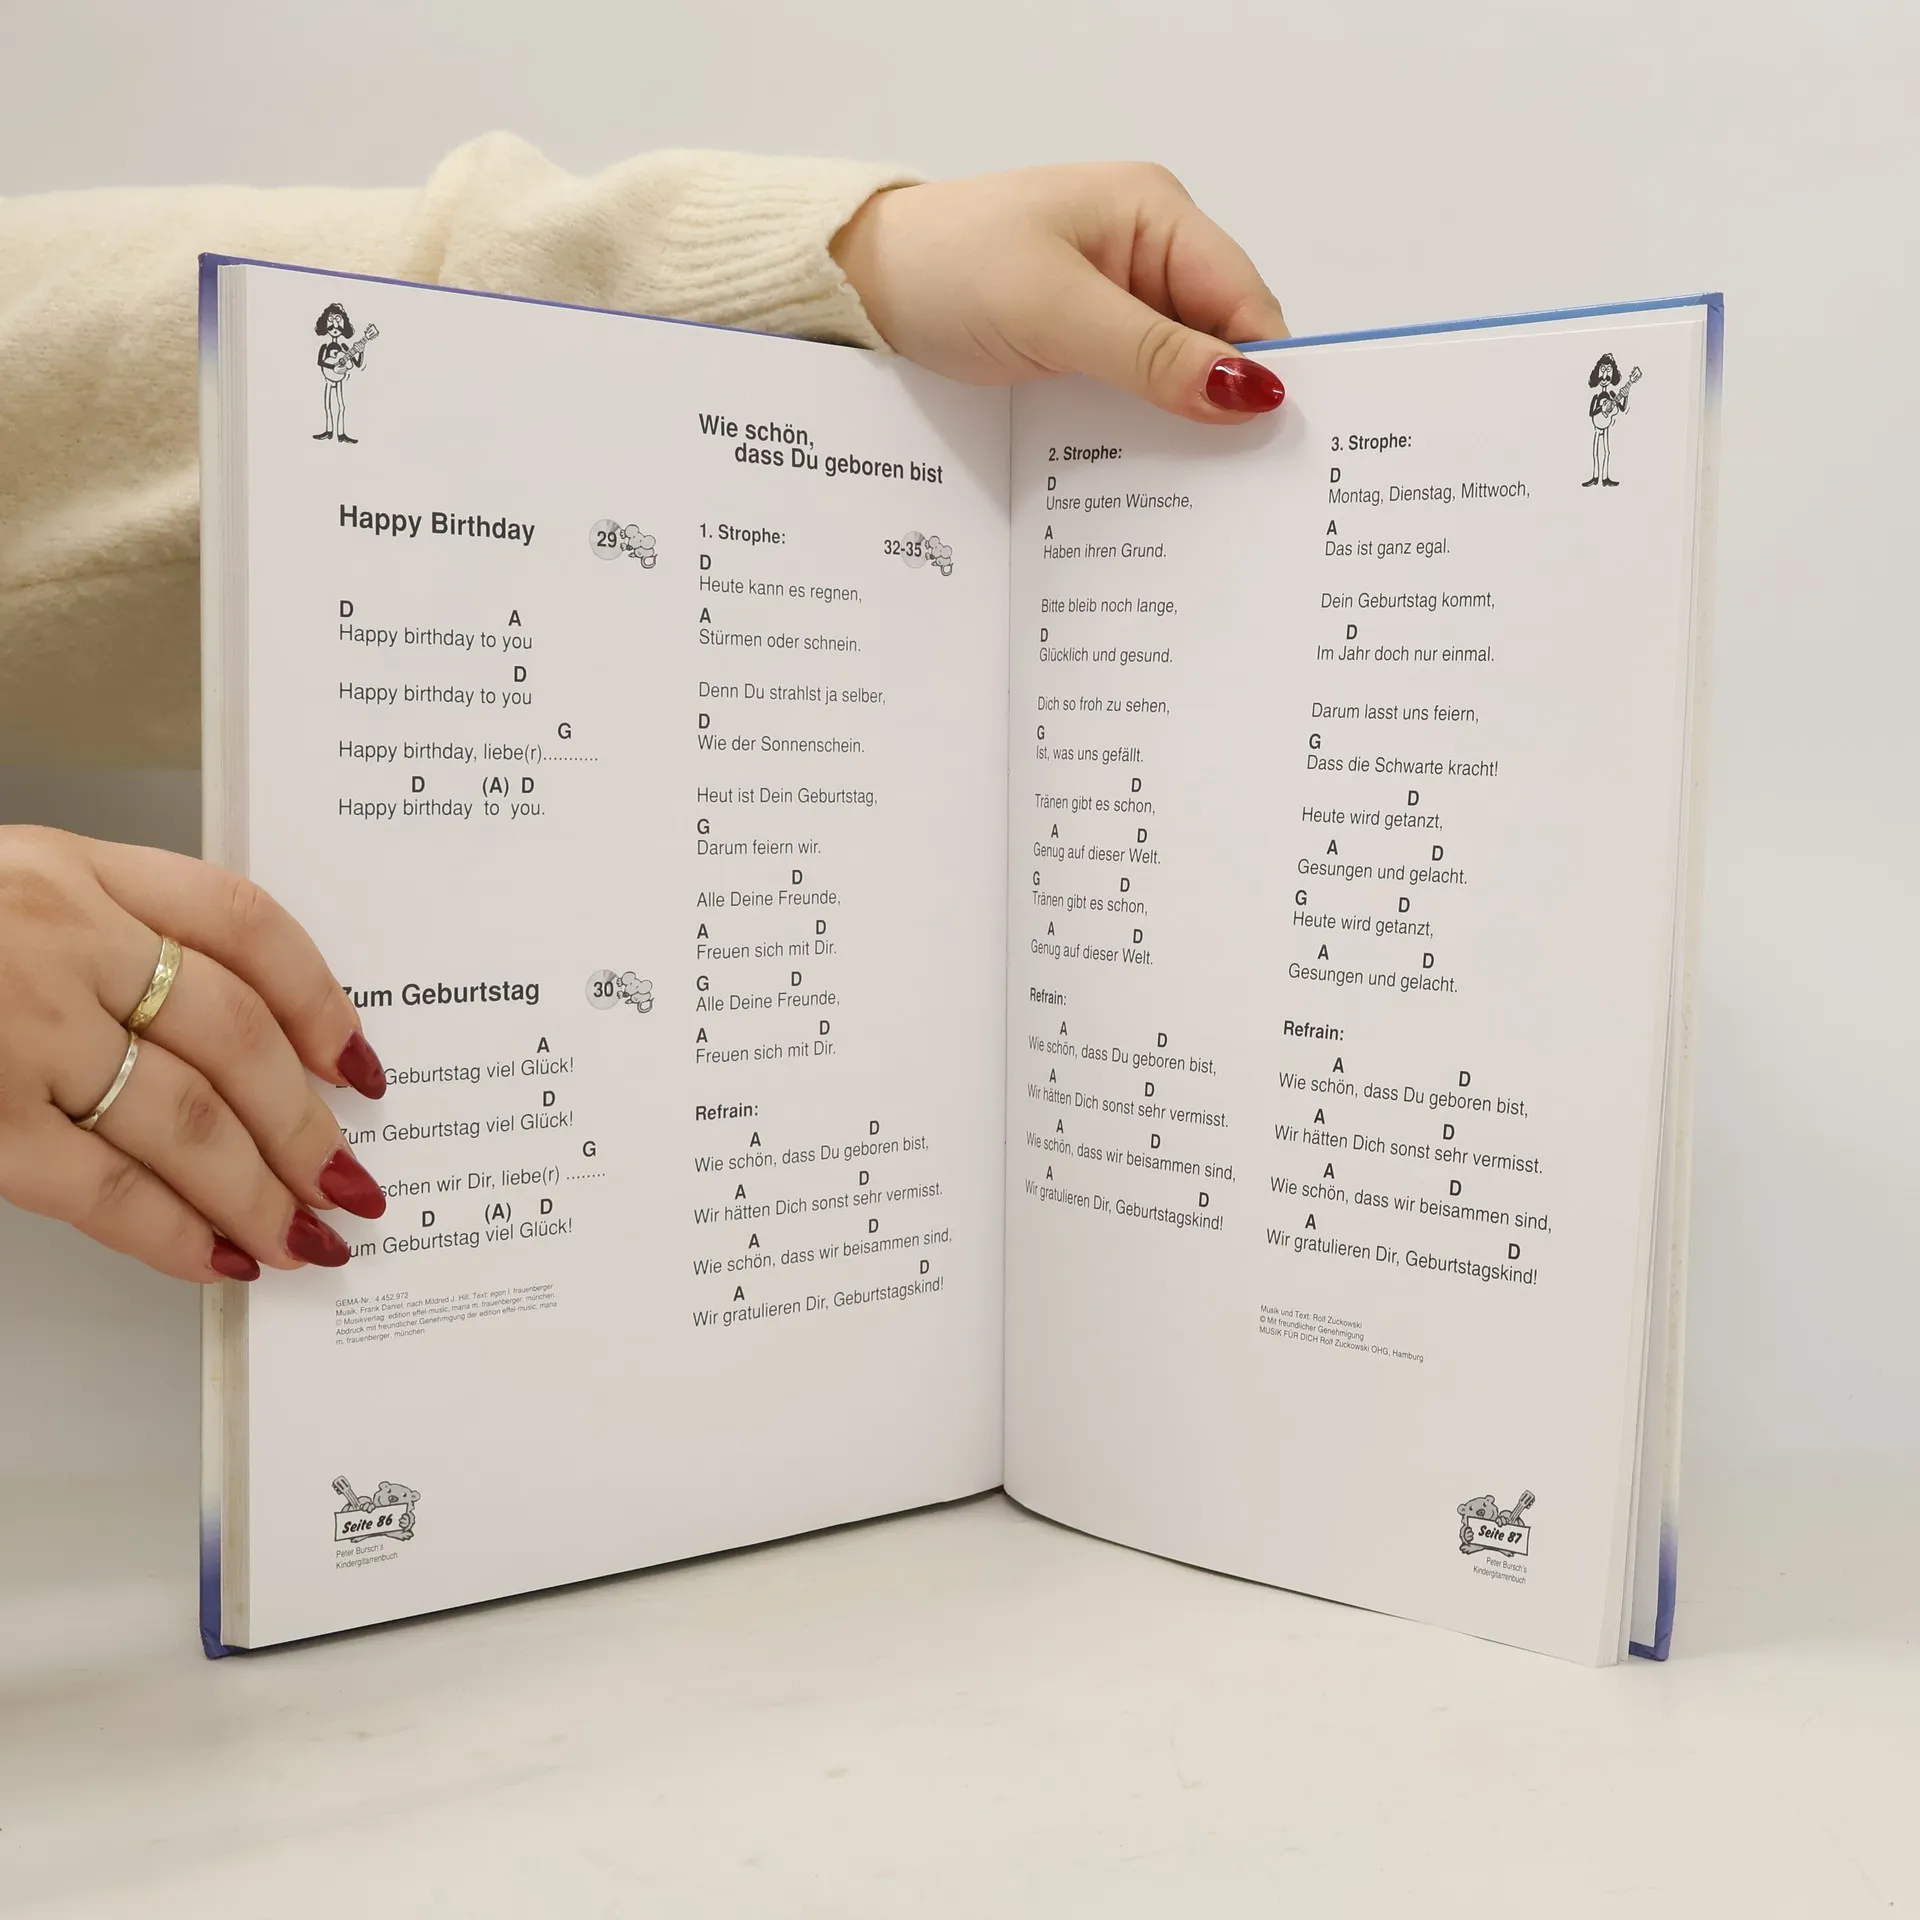 Happy Birthday
29
D A
Happy birthday to you
D
Happy birthday to you
G
Happy birthday, liebe(r)...........
D (A) D
Happy birthday to you.
Zum Geburtstag
30
A
Geburtstag viel Glück!
D
Zum Geburtstag viel Glück!
G
schen wir Dir, liebe(r) ........
D (A) D
Zum Geburtstag viel Glück!
GEMA-Nr.: 4.452.972
Musik: Frank Daniel, nach Mildred J. Hill. Text: egon l. frauenberger
© Musikverlag: edition effel-music, maria m. frauenberger, münchen.
Abdruck mit freundlicher Genehmigung der edition effel-music, maria
m. frauenberger, münchen
Seite 86
Peter Bursch's
Kindergitarrenbuch
Wie schön,
dass Du geboren bist
1. Strophe:
32-35
D
Heute kann es regnen,
A
Stürmen oder schnein.
Denn Du strahlst ja selber,
D
Wie der Sonnenschein.
Heut ist Dein Geburtstag,
G
Darum feiern wir.
D
Alle Deine Freunde,
A D
Freuen sich mit Dir.
G D
Alle Deine Freunde,
A D
Freuen sich mit Dir.
Refrain:
A D
Wie schön, dass Du geboren bist,
A D
Wir hätten Dich sonst sehr vermisst.
A D
Wie schön, dass wir beisammen sind,
A D
Wir gratulieren Dir, Geburtstagskind!
2. Strophe:
D
Unsre guten Wünsche,
A
Haben ihren Grund.
Bitte bleib noch lange,
D
Glücklich und gesund.
Dich so froh zu sehen,
G
Ist, was uns gefällt.
D
Tränen gibt es schon,
A D
Genug auf dieser Welt.
G D
Tränen gibt es schon,
A D
Genug auf dieser Welt.
Refrain:
A D
Wie schön, dass Du geboren bist,
A D
Wir hätten Dich sonst sehr vermisst.
A D
Wie schön, dass wir beisammen sind,
A D
Wir gratulieren Dir, Geburtstagskind!
3. Strophe:
D
Montag, Dienstag, Mittwoch,
A
Das ist ganz egal.
Dein Geburtstag kommt,
D
Im Jahr doch nur einmal.
Darum lasst uns feiern,
G
Dass die Schwarte kracht!
D
Heute wird getanzt,
A D
Gesungen und gelacht.
G D
Heute wird getanzt,
A D
Gesungen und gelacht.
Refrain:
A D
Wie schön, dass Du geboren bist,
A D
Wir hätten Dich sonst sehr vermisst.
A D
Wie schön, dass wir beisammen sind,
A D
Wir gratulieren Dir, Geburtstagskind!
Musik und Text: Rolf Zuckowski
© Mit freundlicher Genehmigung
MUSIK FÜR DICH Rolf Zuckowski OHG, Hamburg
Seite 87
Peter Bursch's
Kindergitarrenbuch